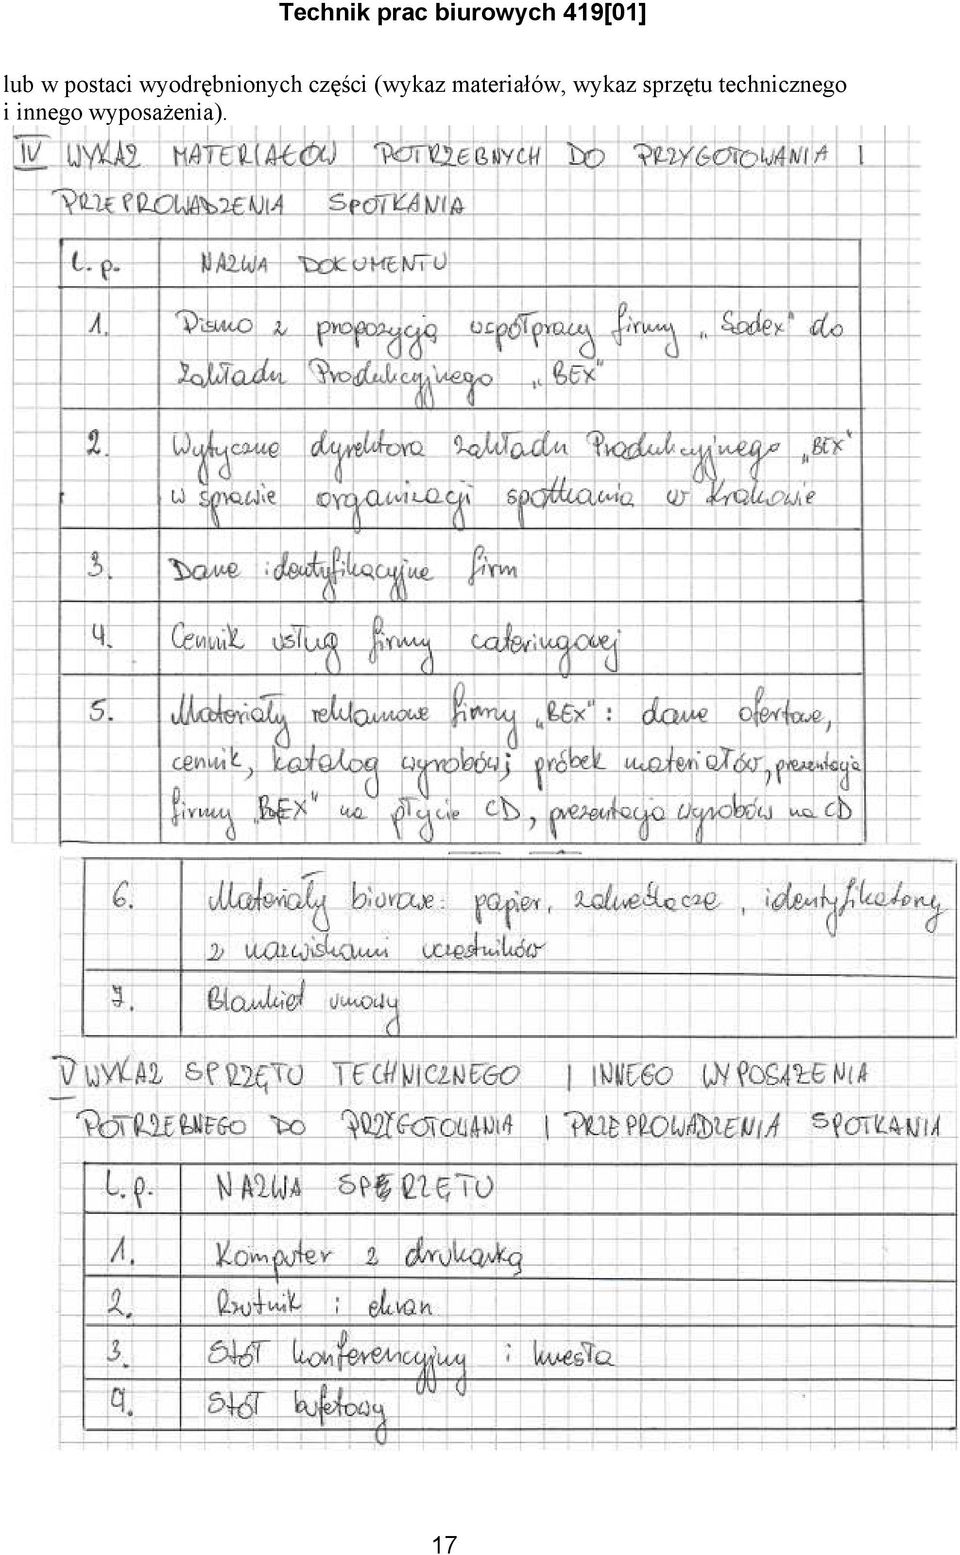 Technik prac biurowych 419[01]
lub w postaci wyodrębnionych części (wykaz materiałów, wykaz sprzętu technicznego
i innego wyposażenia).
IV WYKAZ MATERIAŁÓW POTRZEBNYCH DO PRZYGOTOWANIA I
PRZEPROWADZENIA SPOTKANIA
L.p. NAZWA DOKUMENTU
1. Pismo z propozycją współpracy firmy „Sodex" do
Zakładu Produkcyjnego „BEX"
2. Wytyczne dyrektora Zakładu Produkcyjnego „BEX"
w sprawie organizacji spotkania w Krakowie
3. Dane identyfikacyjne firm
4. Cennik usług firmy cateringowej
5. Materiały reklamowe firmy „BEX": dane ofertowe,
cennik, katalog wyrobów i próbek materiałów, prezentacja
firmy „BEX" na płycie CD, prezentacja wyrobów na CD
6. Materiały biurowe: papier, zakreślacze, identyfikatory
z nazwiskami uczestników
7. Blankiet umowy
V WYKAZ SPRZĘTU TECHNICZNEGO I INNEGO WYPOSAŻENIA
POTRZEBNEGO DO PRZYGOTOWANIA I PRZEPROWADZENIA SPOTKANIA
L.p. NAZWA SPRZĘTU
1. Komputer z drukarką
2. Rzutnik i ekran
3. Stół konferencyjny i krzesła
4. Stół bufetowy
17